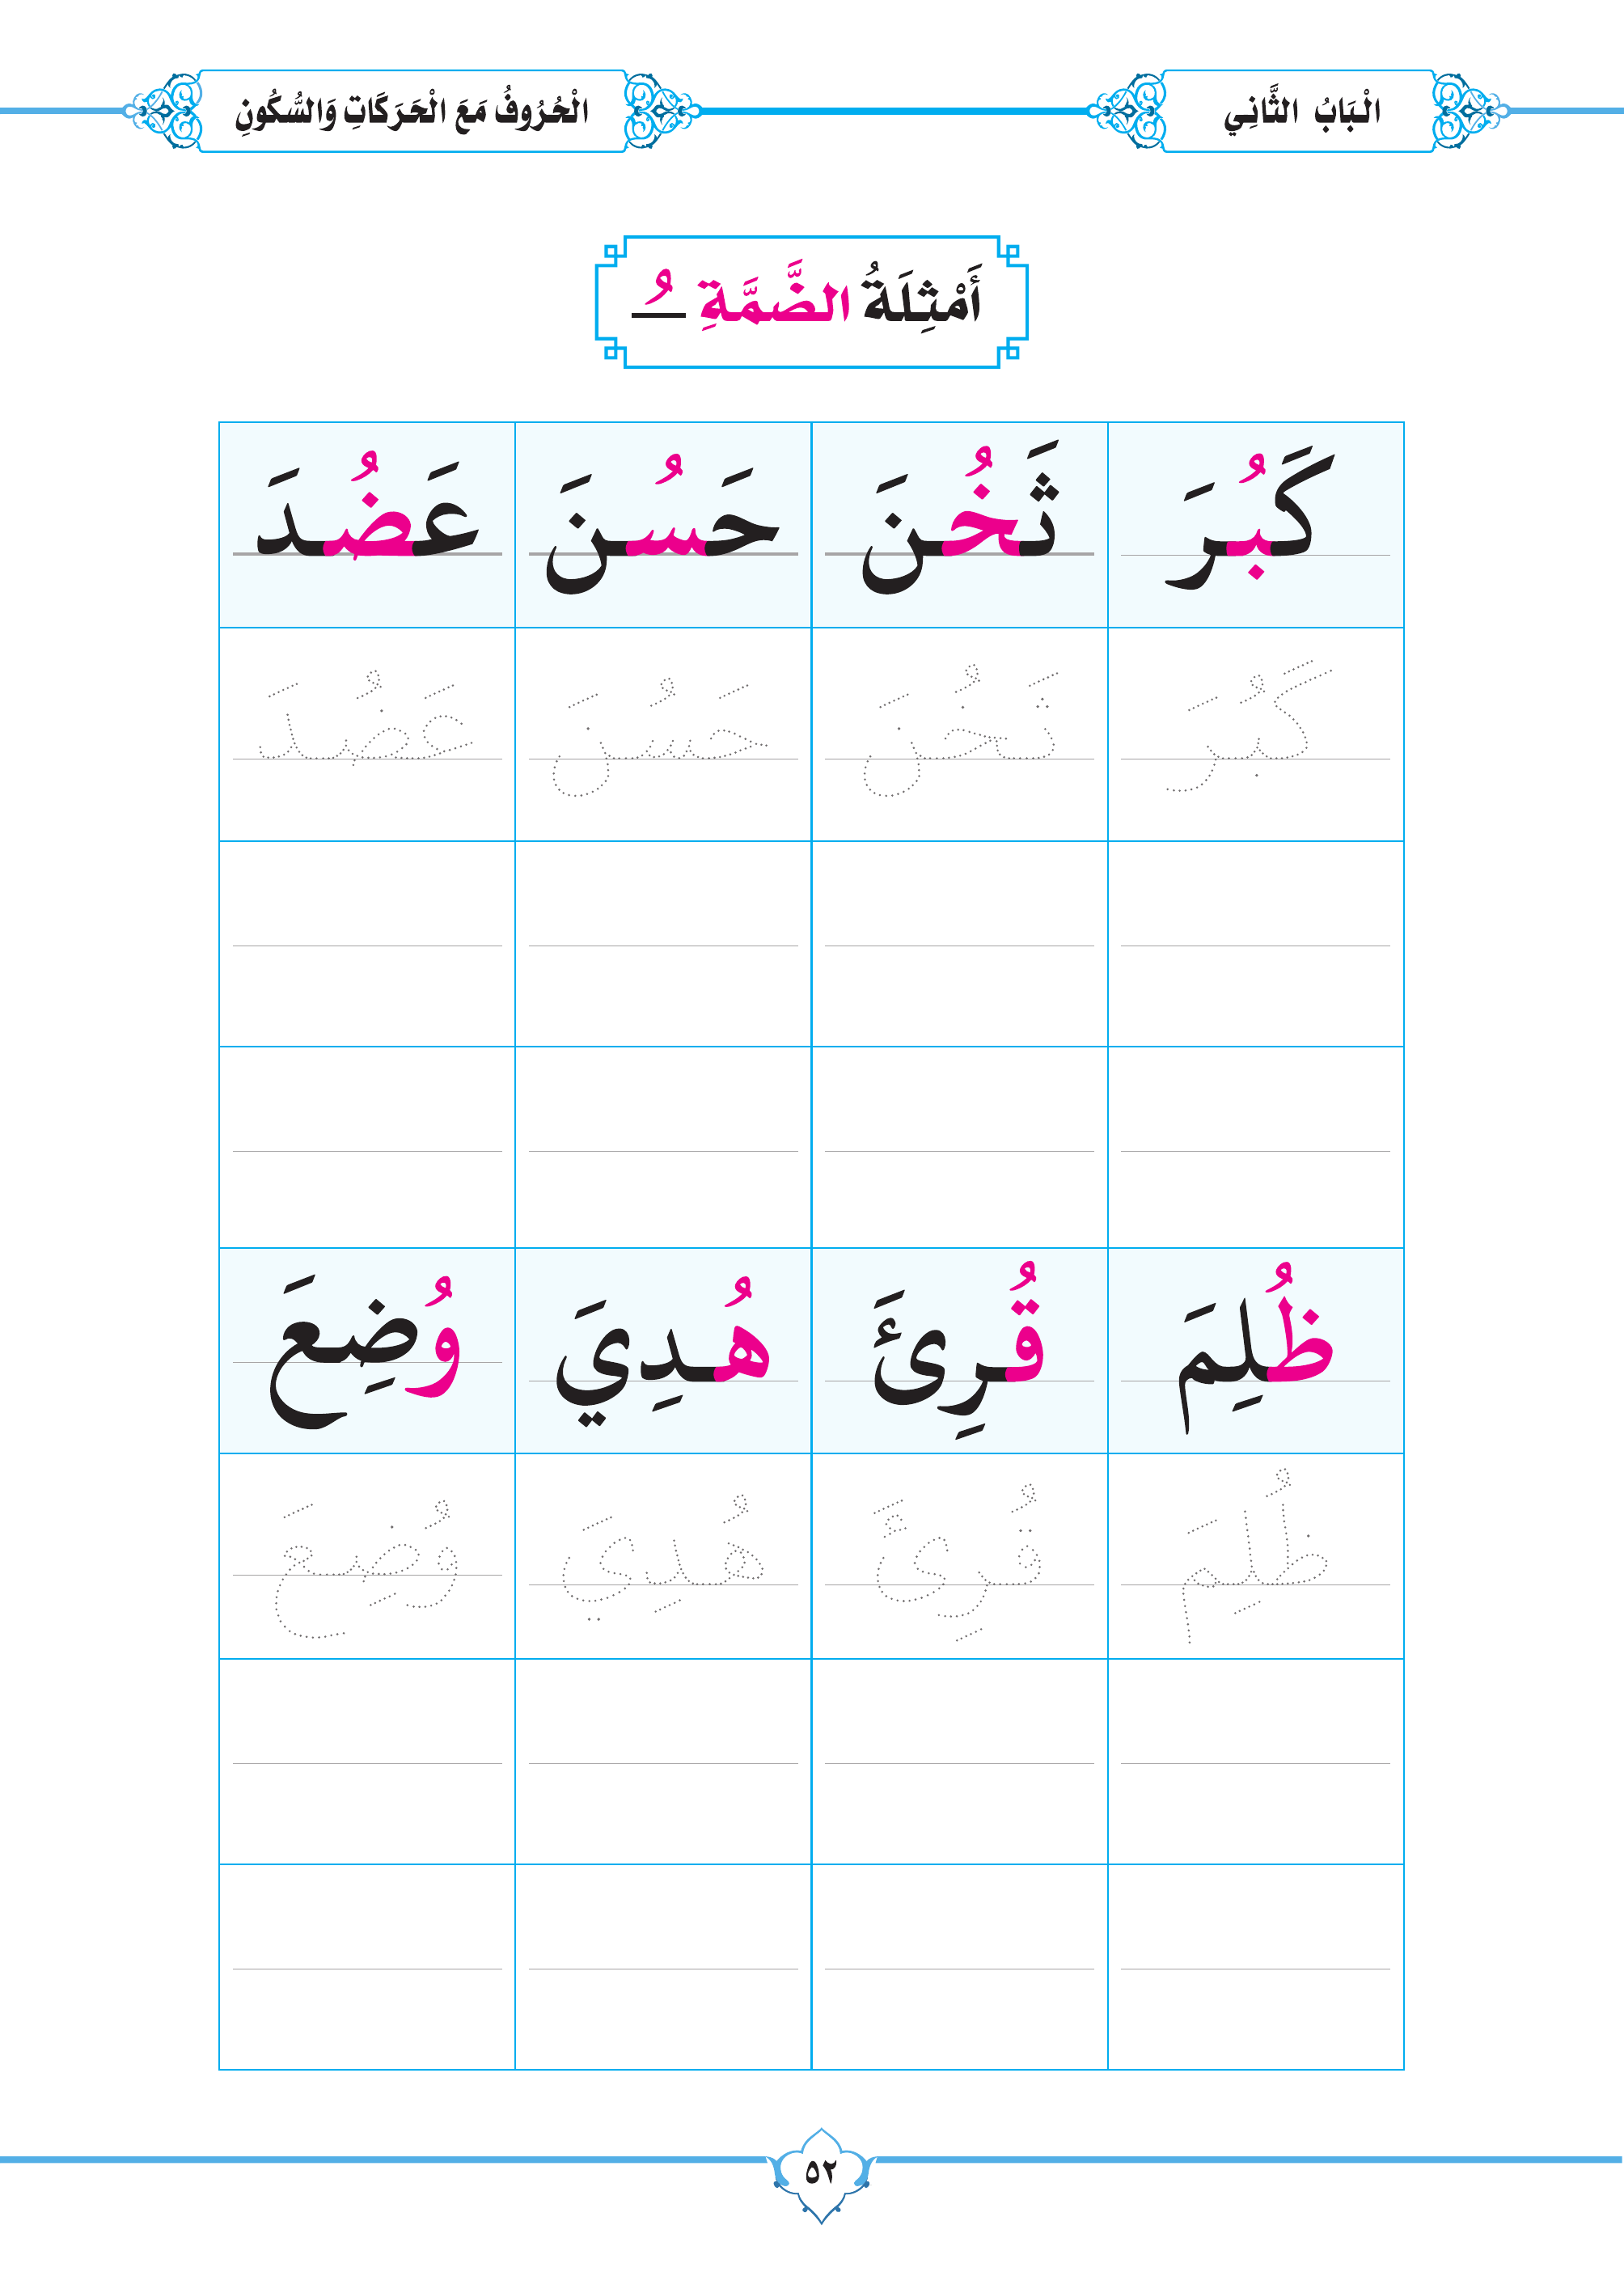 الْبَابُ الثَّانِي
الْحُرُوفُ مَعَ الْحَرَكَاتِ وَالسُّكُونِ
أَمْثِلَةُ الضَّمَّةِ ـُ
كَبُرَ ثَخُنَ حَسُنَ عَضُدَ
كَبُرَ ثَخُنَ حَسُنَ عَضُدَ
ظُلِمَ قُرِئَ هُدِيَ وُضِعَ
ظُلِمَ قُرِئَ هُدِيَ وُضِعَ
٥٢